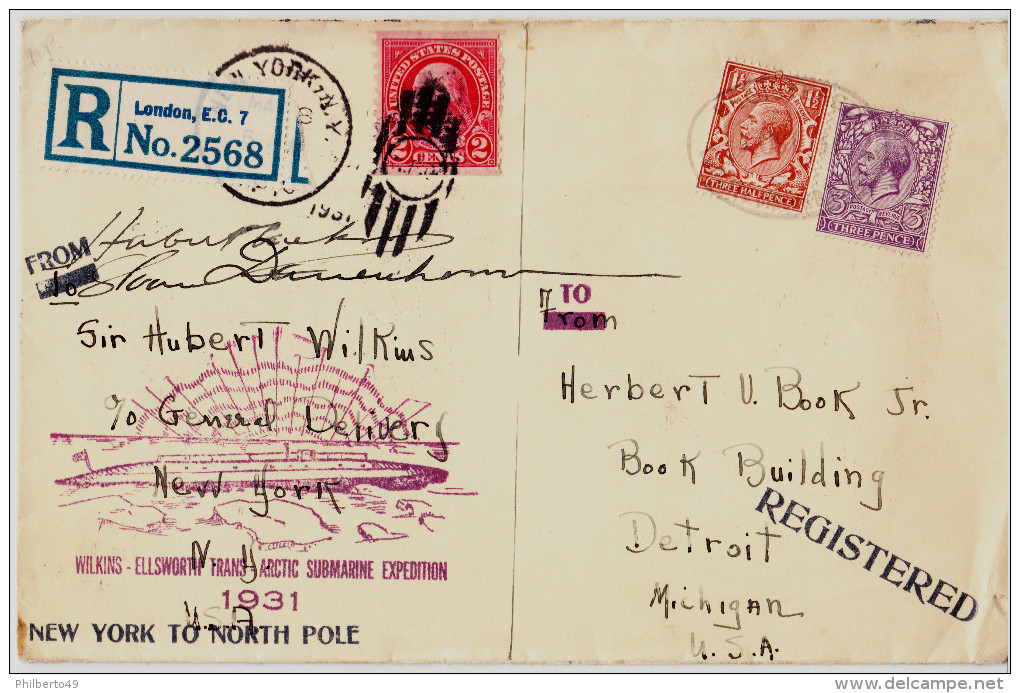 R
London, E.C. 7
No. 2568
YORK, N.Y.
1931
UNITED STATES POSTAGE
2 CENTS 2
1½ 1½
THREE HALFPENCE
3 3
THREE PENCE
FROM
To
Sir Hubert Wilkins
c/o General Delivery
New York
N.Y.
U.S.A
WILKINS - ELLSWORTH TRANS-ARCTIC SUBMARINE EXPEDITION
1931
NEW YORK TO NORTH POLE
TO
From
Herbert V. Book Jr.
Book Building
Detroit
Michigan
U.S.A.
REGISTERED
Philberto49
www.delcampe.net